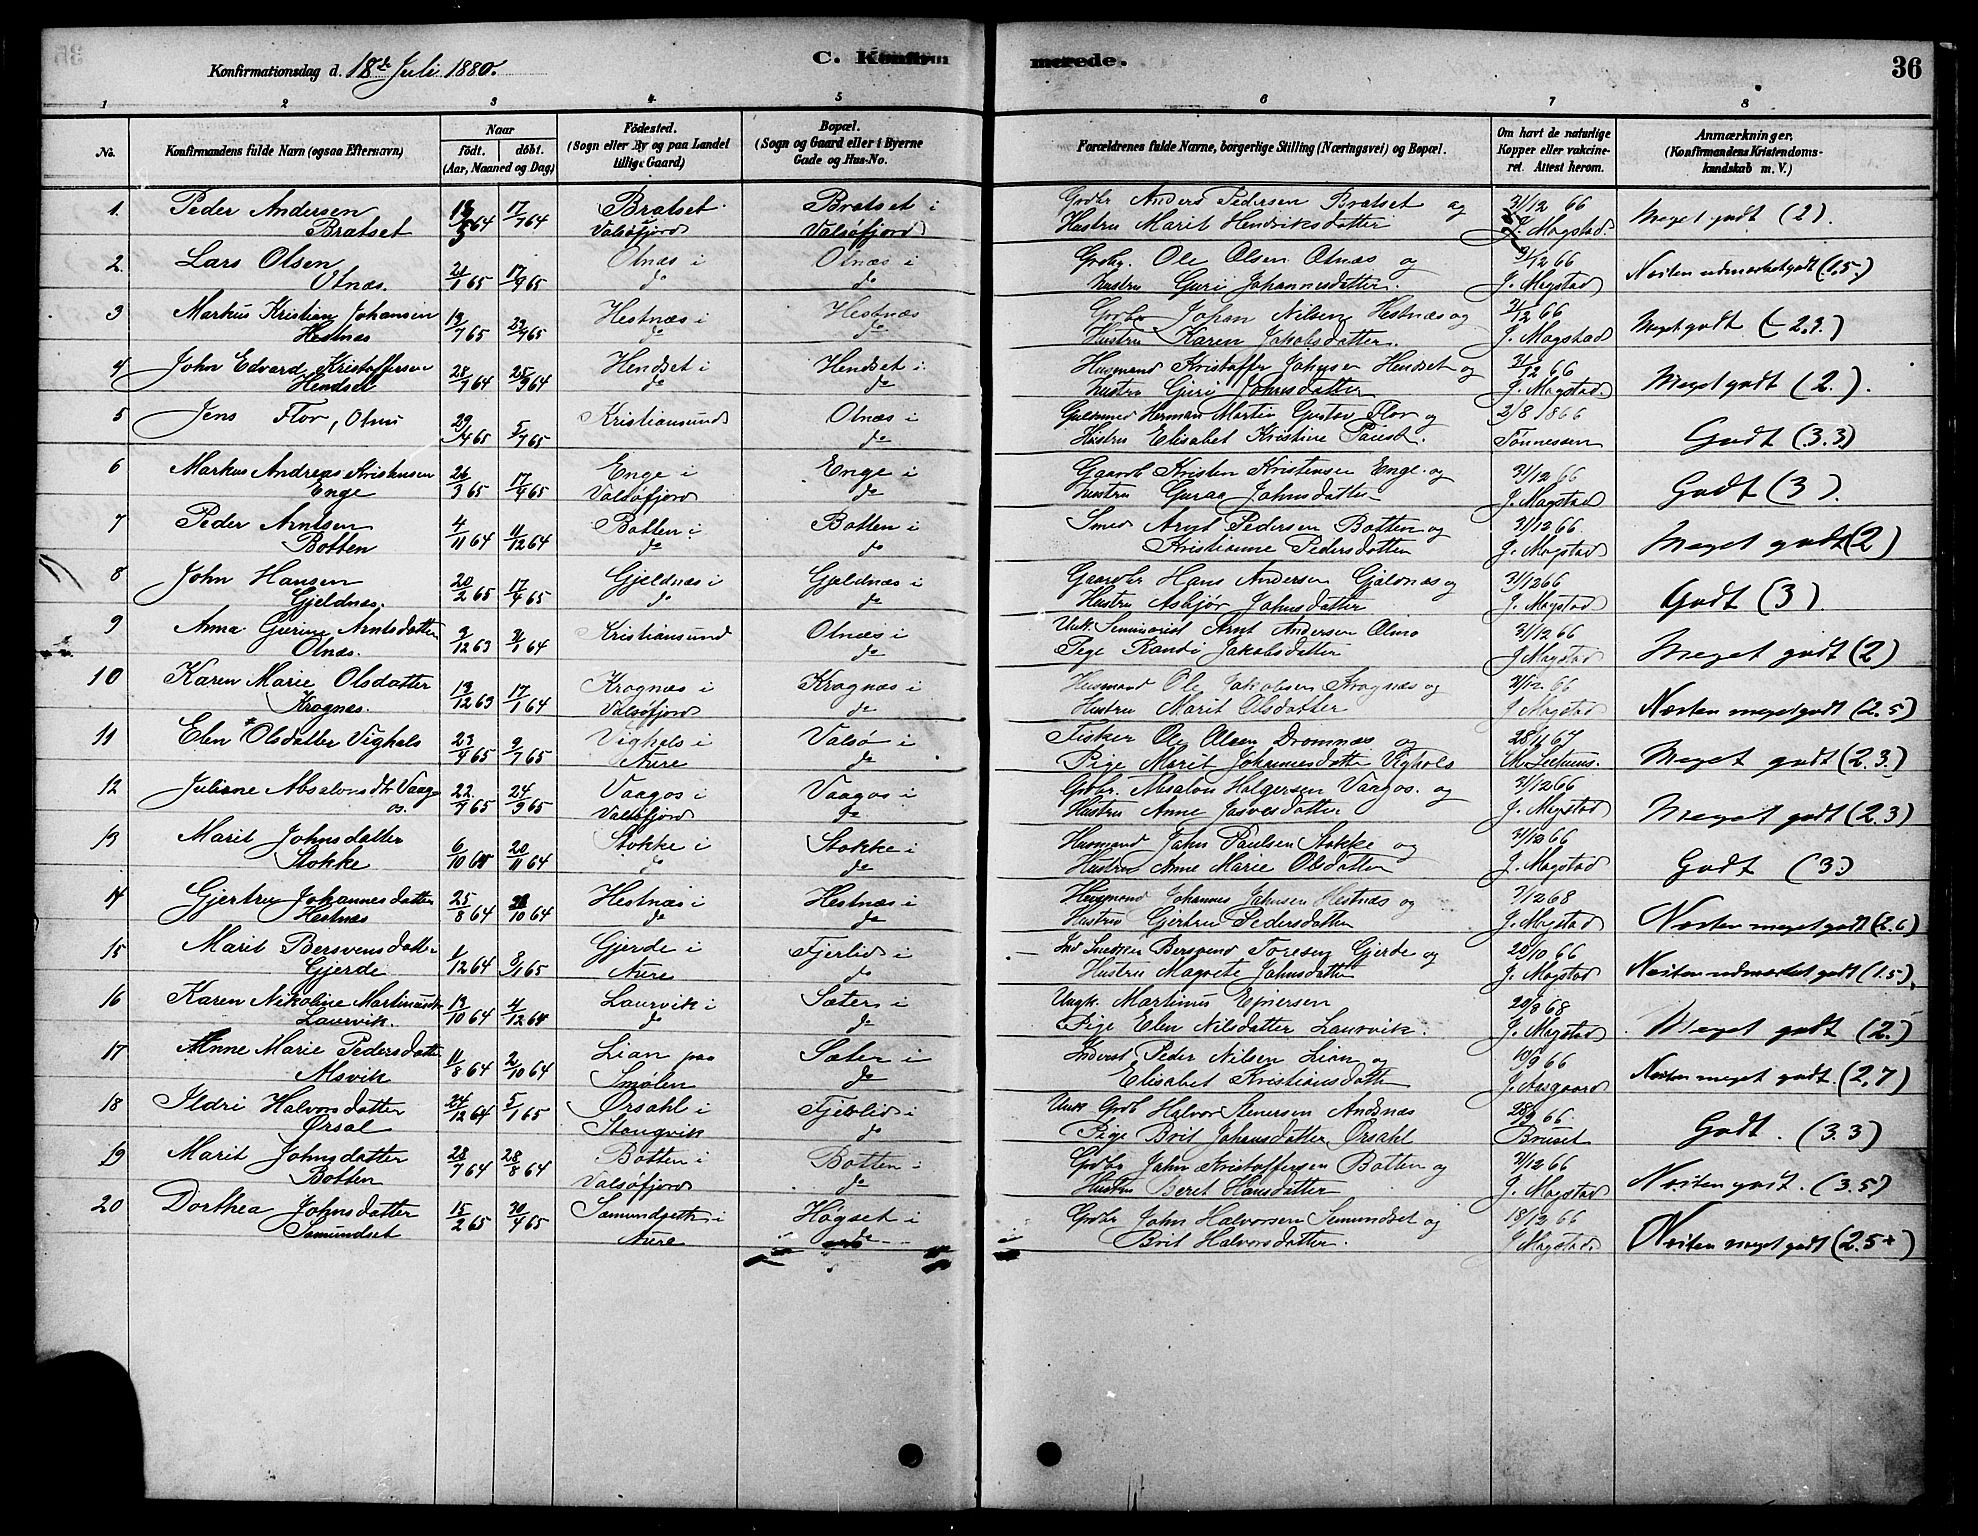 Konfirmationsdag d. 18de Juli 1880.
C. Konfirmerede.
36
1 2 3 4 5 6 7 8
No.
Konfirmandens fulde Navn (ogsaa Efternavn)
Naar
födt. döbt.
(Aar, Maaned og Dag)
Födested.
(Sogn eller By og paa Landet
tillige Gaard)
Bopæl.
(Sogn og Gaard eller i Byerne
Gade og Hus-No.
Forældrenes fulde Navne, borgerlige Stilling (Næringsvei) og Bopæl.
Om havt de naturlige
Kopper eller vakcine-
ret. Attest herom.
Anmærkninger.
(Konfirmandens Kristendoms-
kundskab m. V.)
1. Peder Andersen 17/7 64 Bratset Bratset i Grdbr Anders Pedersen Bratset og 31/12 66 Meget godt (2).
Bratset Valsøfjord Valsøfjord Hustru Marit Hendriksdatter J. Magstad
2. Lars Olsen 21/1 65 17/9 65 Otnæs i Otnæs i Grdbr. Ole Olsen Otnæs og 31/12 66 Næsten udmærket godt (1.5.)
Otnæs. do do Hustru Guri Johannesdatter. J. Magstad
3 Markus Kristian Johansen 13/7 65 23/9 65 Hestnæs i Hestnæs Grdbr Johan Nilsen Hestnæs og 31/12 66 Meget godt (-2.3.)
Hestnæs do do Hustru Karen Jakobsdatter. J. Magstad
4 John Edvard Kristoffersen 28/7 64 25/9 64 Hendset i Hendset i Husmand Kristoffer Johnsen Hendset og 31/12 66 Meget godt (2.).
Hendset do do Hustru Guri Johnsdatter J. Magstad
5 Jens Flor, Otnæs 29/4 65 5/7 65 Kristiansund Otnæs i Guldsmed Herman Martin Gustav Flor og 2/8 1866 Godt (3.3)
do Hustru Elisabet Kristine Paust. Tønnessen
6 Markus Andreas Kristensen 26/3 65 17/4 65 Enge i Enge i Gaardb Kristen Kristensen Enge og 31/12 66 Godt (3).
Enge Valsøfjord do Hustru Guraa Johnsdatter J. Magstad
7 Peder Arntsen 4/11 64 11/12 64 Botten i Botten i Smed Arnt Pedersen Botten og 31/12 66 Meget godt (2)
Botten do do Kristianne Pedersdatter J. Magstad
8 John Hansen 20/2 65 17/4 65 Gjeldnæs i Gjeldnæs i Gaardbr Hans Andersen Gjeldnæs og 31/12 66 Godt (3)
Gjeldnæs. do do Hustru Asbjør Johnsdatter J. Magstad
9 Anna Gurine Arntsdatter 9/12 63 31/1 64 Kristiansund Otnæs i Unk. Seminarist Arnt Andersen Olmo 31/12 66 Meget godt (2)
Otnæs. do Pige Randi Jakobsdatter J. Magstad
10 Karen Marie Olsdatter 13/12 63 17/1 64 Krognæs i Krognæs i Husmand Ole Jakobsen Krognæs og 31/12 66 Næsten meget godt (2.5)
Krognæs. Valsøfjord do Hustru Marit Olsdatter J. Magstad
11 Elen Olsdatter Vighals 23/4 65 9/7 65 Vighals i Valsø i Fisker Ole Olsen Dromnæs og 28/11 67 Meget godt (2.3.)
Aure do Pige Marit Johannesdatter Vighals
12 Juliane Absalonsdtr Vaag- 22/7 65 24/9 65 Vaagos i Vaagos i Grdbr. Absalon Holgersen Vaagos. og 31/12 66 Meget godt (2.3)
os. Valsøfjord do Hustru Anne J. Magstad
13 Marit Johnsdatter 6/10 64 20/11 64 Stokke i Stokke i Husmand John Paulsen Stokke og 31/12 66 Godt (3)
Stokke do do Hustru Anne Marie Olsdatter J. Magstad
14 Gjertru Johannesdatter 25/8 64 /10 64 Hestnæs i Hestnæs i Husmand Johannes Johnsen Hestnæs og 7/12 68 Næsten meget godt (2.6)
Hestnæs do do Hustru Gjertru Pedersdatter J. Magstad
15 Marit Bersvensdatter 1/12 64 8/1 65 Gjerde i Fjerlid i Ind Snedker Bersvend Toresen Gjerde og 20/10 66 Næsten udmærket godt (1.5).
Gjerde Aure do Hustru Magrete Johnsdatter J. Magstad
16 Karen Nikoline Martinusdtr 13/10 64 4/12 64 Laurvik i Sæter i Ungk. Martinus Ejnersen 20/8 68 Meget godt (2.)
Laurvik. do do Pige Elen Nilsdatter Laurvik. J. Magstad
17 Anne Marie Pedersdatter 11/8 64 2/10 64 Lian paa Sæter i Inderst Peder Nilsen Lian og 10/9 66 Næsten meget godt. (2,7)
Alsvik Smølen do Elisabet Kristiansdatter J. Aargaard
18 Ildri Halvorsdatter 24/12 64 5/1 65 Ørsahl i Fjerlid i Unk Grdb Halvor Stenersen Andsnæs 28/9 66 Godt. (3.3)
Ørsal Stangvik do Pige Brit Johansdatter Ørsahl Bruset
19 Marit Johnsdatter 28/7 64 28/8 64 Botten i Botten i Grdbr John Kristoffersen Botten og 31/12 66 Næsten godt. (3.5)
Botten Valsøfjord do Hustru Beret Hansdatter J. Magstad
20 Dorthea Johnsdatter 15/2 65 30/4 65 Samundseth i Høgset i Grdbr John Halvorsen Semundset og 18/12 66 Næsten meget godt (2.5+)
Samundset Aure do Brit Halvorsdatter. J. Magstad.